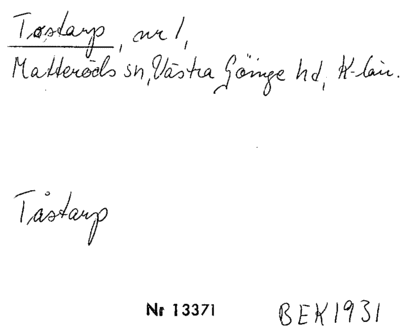 Tostarp, nr 1,
Matteröds sn, Västra Göinge hd, K-län.
Tåstarp
Nr 13371
BEK 1931